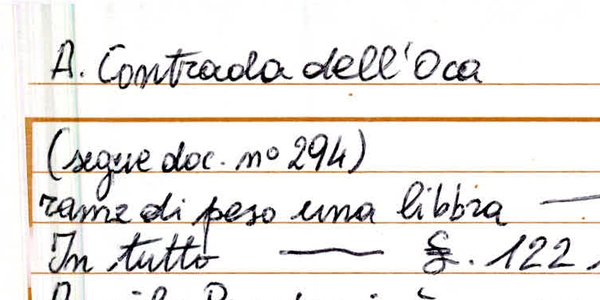 A. Contrada dell'Oca
(segue doc. nº 294)
rame di peso una libbra —
In tutto — £. 122